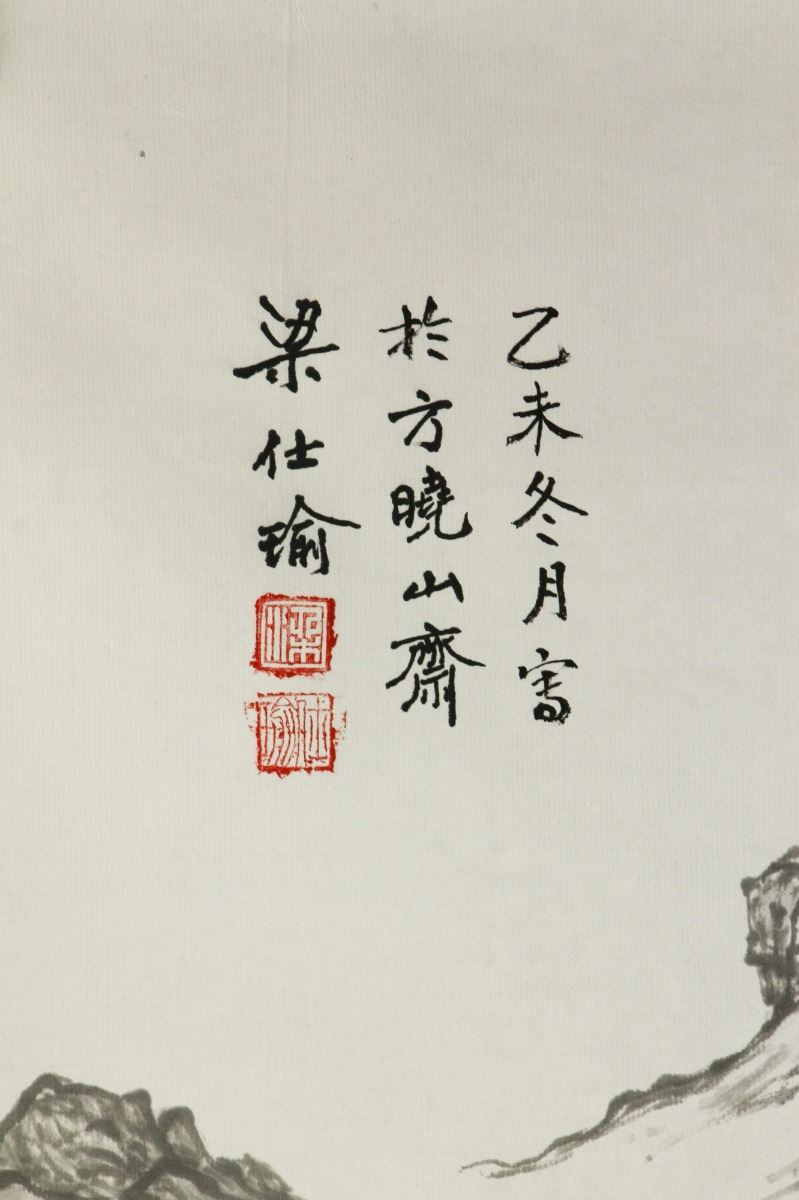 乙未冬月寫
於方曉山齋
梁仕瑜
梁
仕瑜